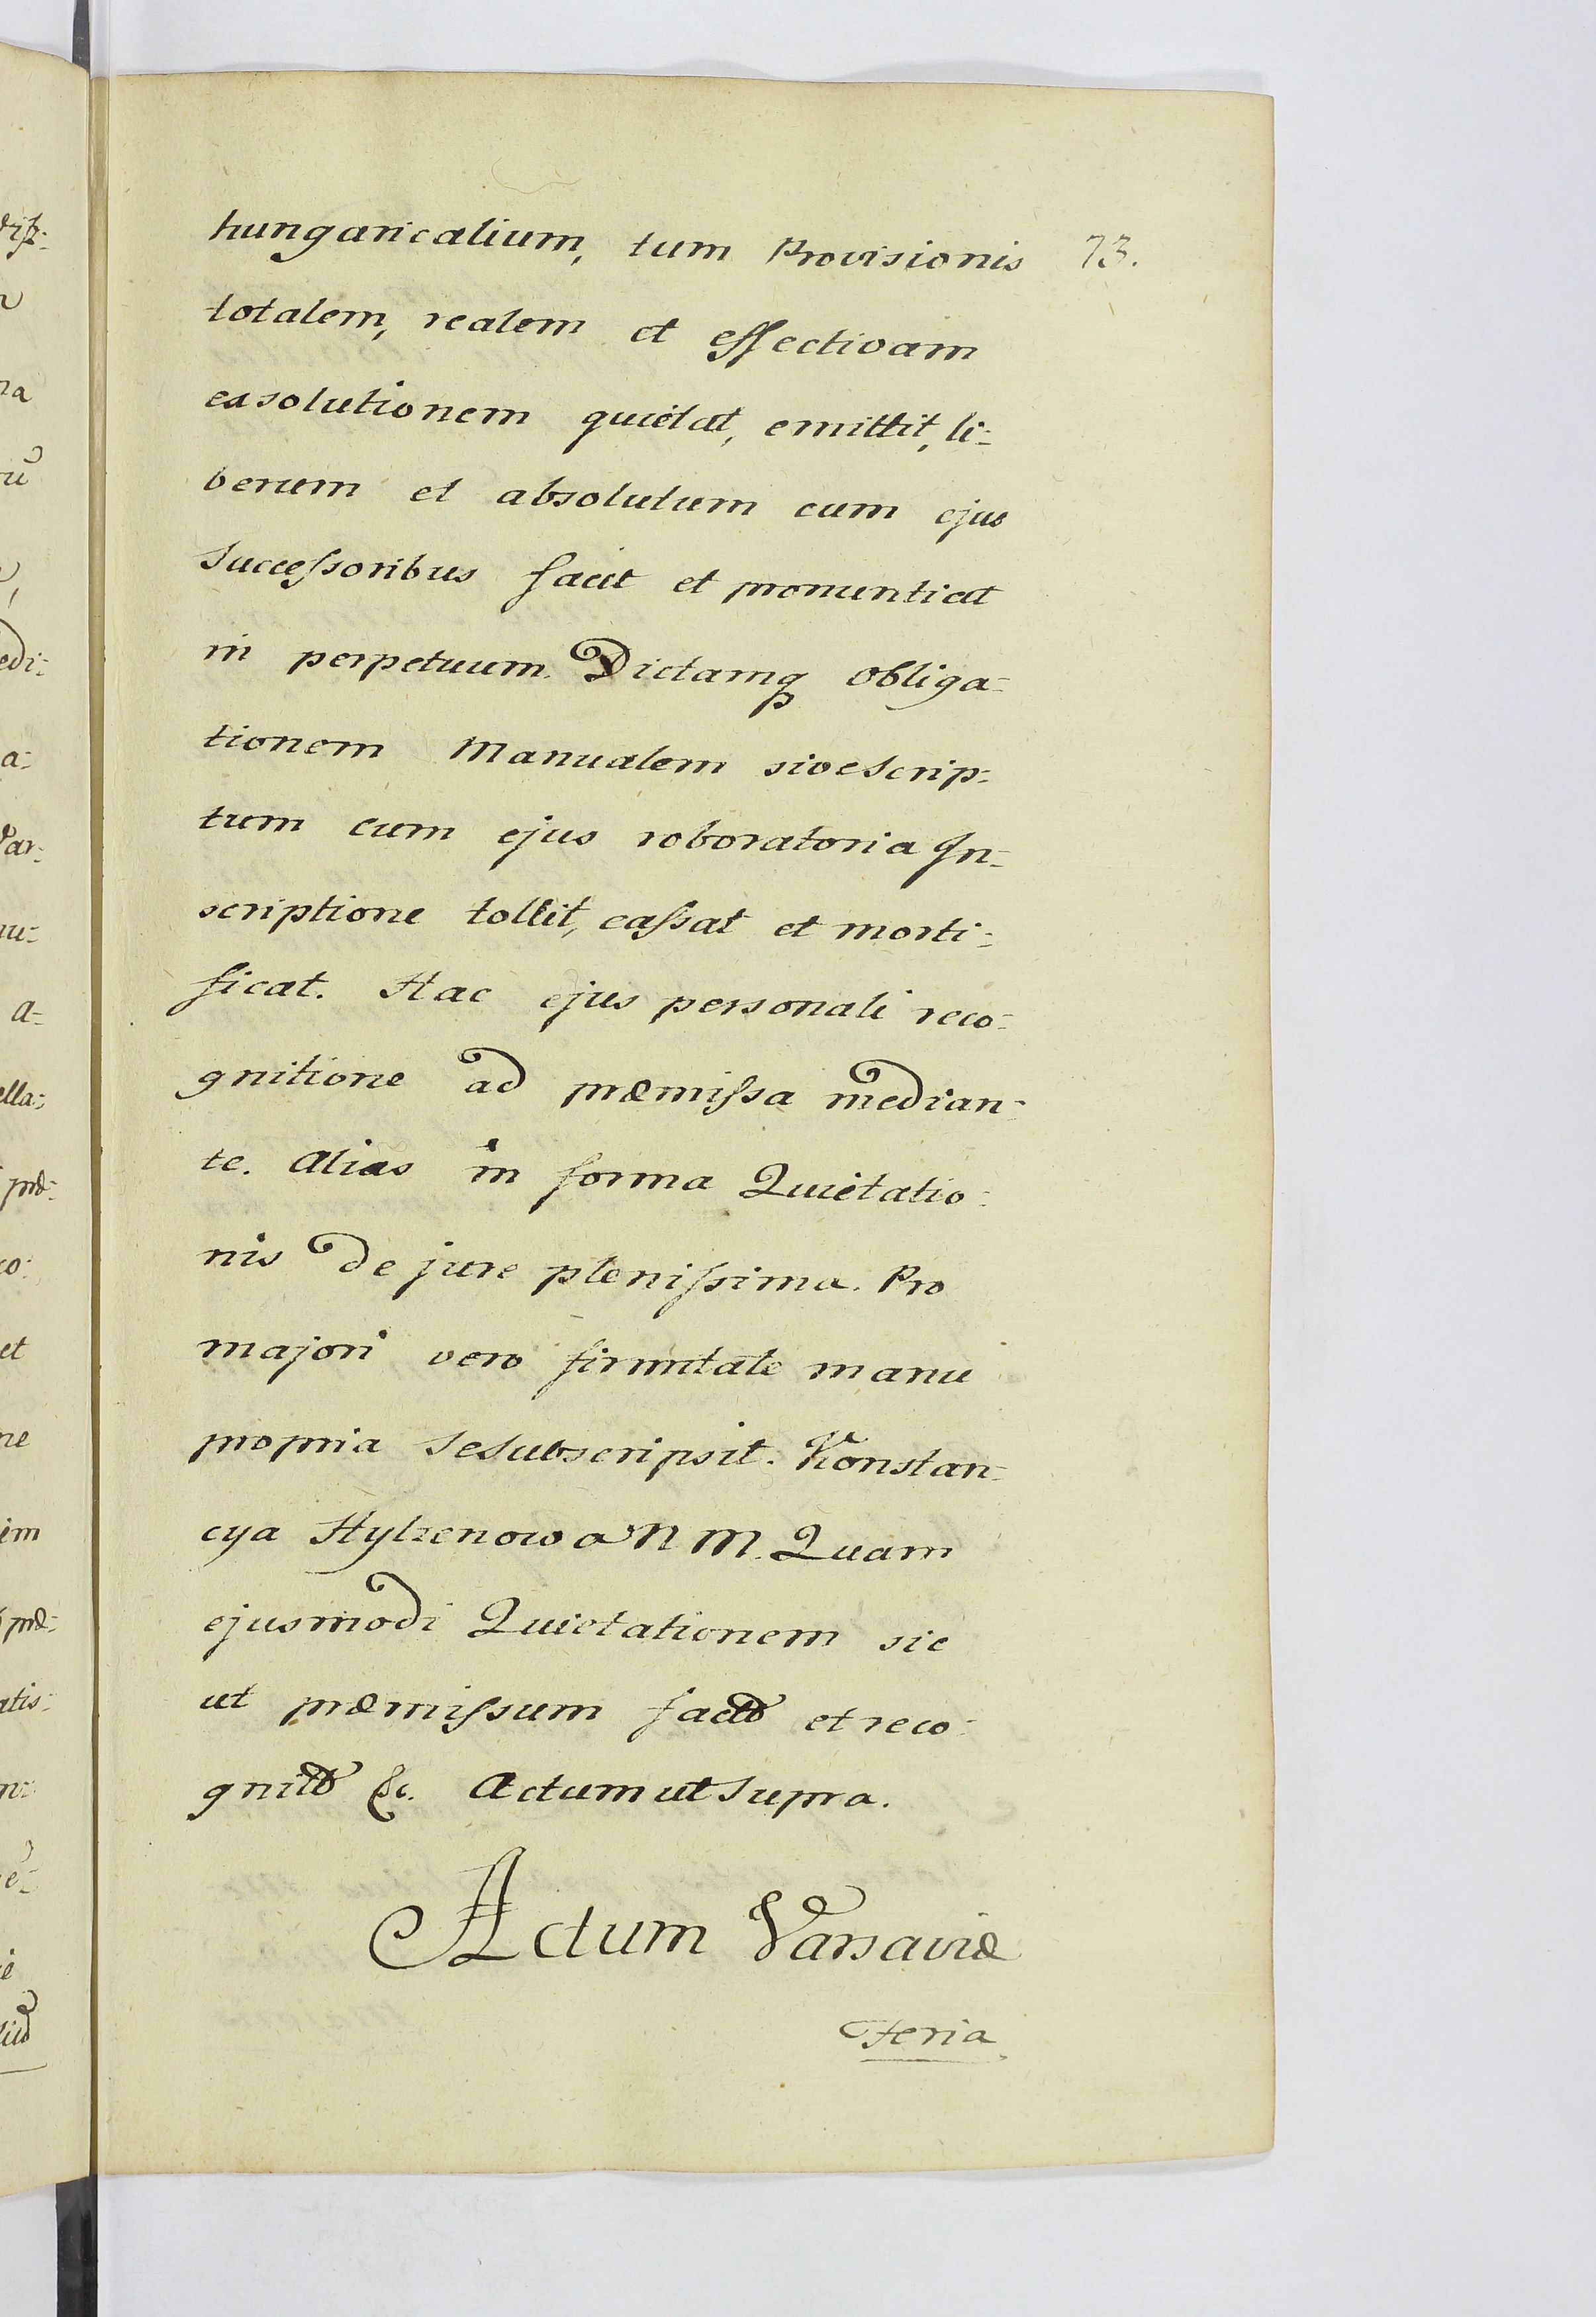 73.
hungaricalium, tum Provisionis
totalem, realem et effectivam
exsolutionem quietat, emittit, li=
berum et absolutum cum ejus
Successoribus facit et pronuntiat
in perpetuum. Dictamq obliga=
tionem Manualem sive Scrip=
tum cum ejus roboratoria In=
scriptione tollit, caſsat et morti=
ficat. Hac ejus personali reco=
gnitione ad præmiſsa median=
te. Alias in forma Quietatio=
nis de jure pleniſsima. Pro
majori vero firmitate manu
propria Se Subscripsit. Konstan=
cya Hylzenowa N M. Quam
ejusmodi Quietationem sic
ut præmiſsum et reco=
&c. Actum ut Supra.
Actum Varsaviæ
Feria